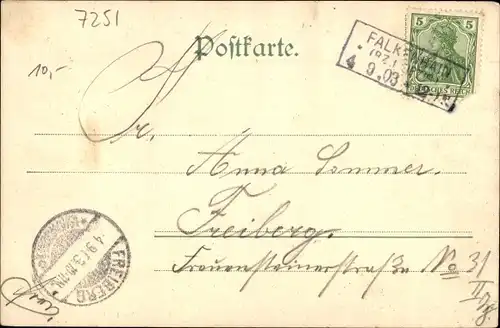 7251
10,-
Postkarte.
5
FALKENHAIN
4.9.03
DEUTSCHES REICH
Fr.
Anna Sommer.
Freiberg.
Frauensteinerstraße No 31
II Etg.
FREIBERG
4.9.03